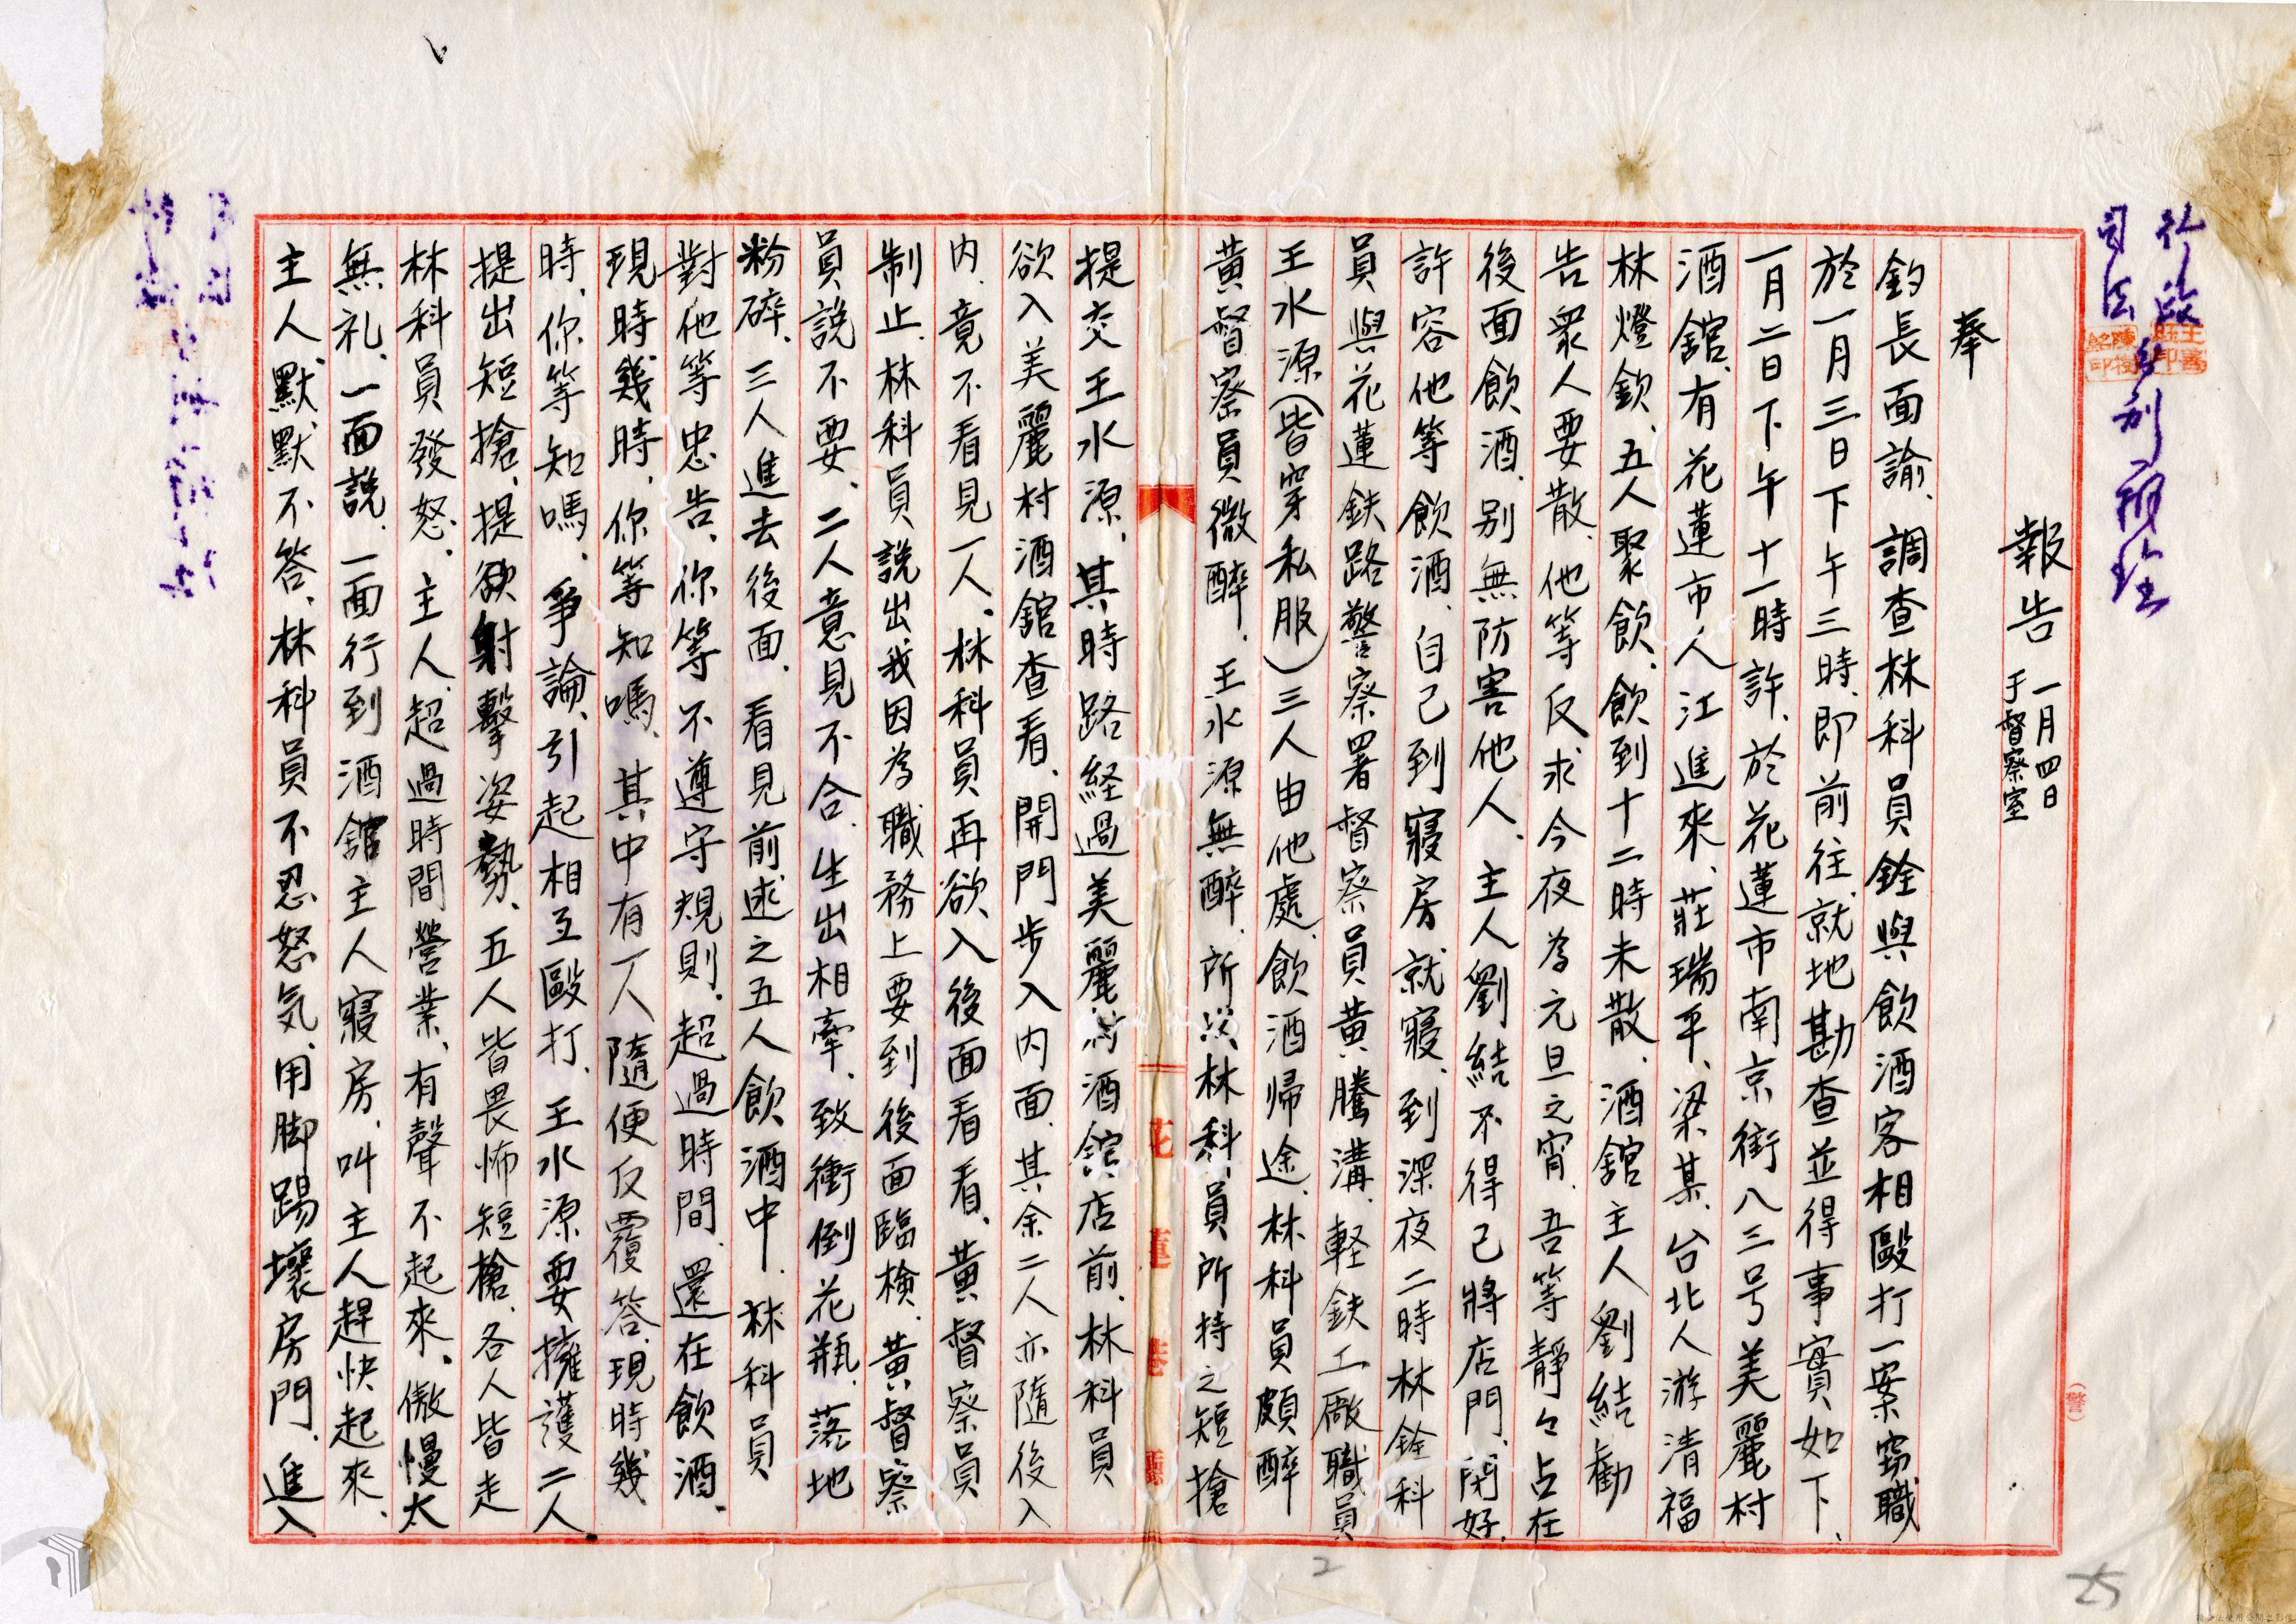 行政
司法
分別報告
報告 一月四日
于督察室
奉
鈞長面諭、調查林科員銓與飲酒客相毆打一案窃職
於一月三日下午三時、即前往、就地勘查並得事實如下、
一月二日下午十一時許、於花蓮市南京街八三号美麗村
酒舘、有花蓮市人江進來、莊瑞平、梁某、台北人游清福
林燈欽、五人聚飲、飲到十二時未散、酒舘主人劉結勸
告眾人要散、他等反求今夜為元旦之宵、吾等靜々占在
後面飲酒、别無防害他人、主人劉結不得已將店門、閉好、
許容他等飲酒、自己到寢房就寢、到深夜二時林銓科
員與花蓮鉄路警察署督察員黃騰溝、軽鉄工廠職員
王水源(皆穿私服)三人由他處、飲酒帰途、林科員頗醉
黃督察員微醉、王水源無醉、所以林科員所持之短搶
提交王水源、其時路経過美麗村酒舘店前、林科員
欲入美麗村酒舘查看、開門步入内面、其余二人亦隨後入
内、竟不看見一人、林科員再欲入後面看看、黃督察員
制止、林科員說出我因為職務上要到後面臨檢、黃督察
員說不要、二人意見不合、生出相牽、致衝倒花瓶、落地
粉碎、三人進去後面、看見前述之五人飲酒中、林科員
對他等忠告、你等不遵守規則、超過時間、還在飲酒、
現時幾時、你等知嗎、其中有一人隨便反覆答、現時幾
時、你等知嗎、爭論、引起相互毆打、王水源要擁護二人、
提出短搶、提欲射擊姿勢、五人皆畏怖短槍、各人皆走
林科員發怒、主人、超過時間營業、有聲不起來、傲慢太
無礼、一面說、一面行到酒舘主人寢房、叫主人趕快起來、
主人、默默不答、林科員不忍怒気、用脚踢壞房門、進入
花蓮港廳
(警)
2